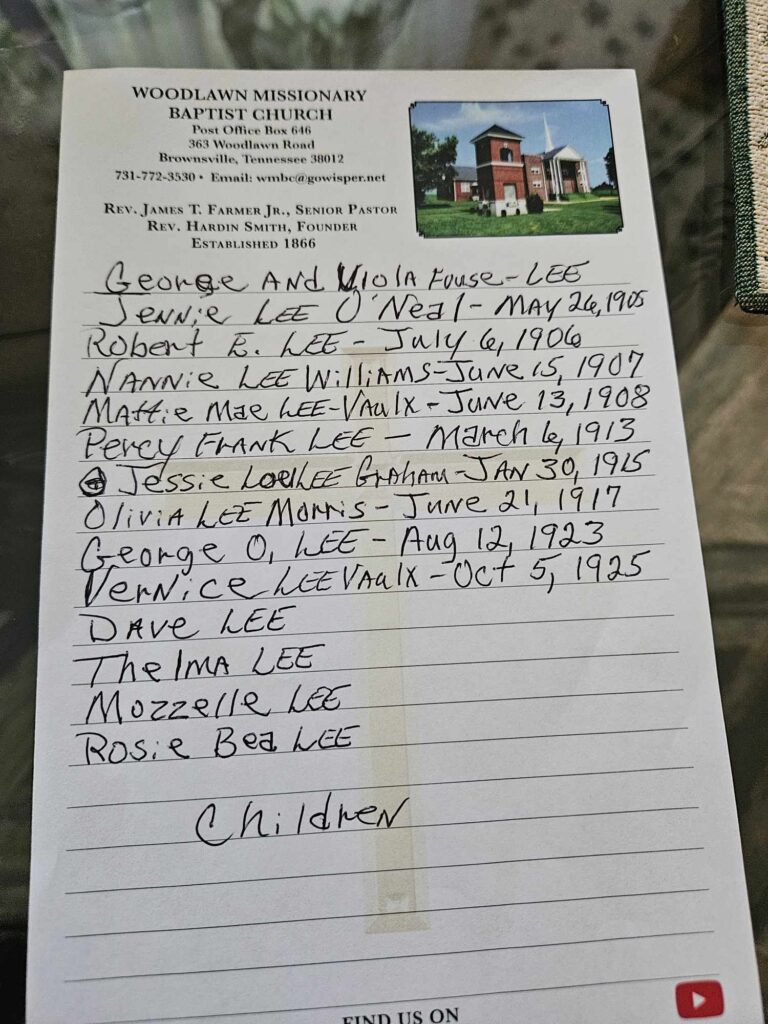 WOODLAWN MISSIONARY
BAPTIST CHURCH
Post Office Box 646
363 Woodlawn Road
Brownsville, Tennessee 38012
731-772-3530 • Email: wmbc@gowisper.net
REV. JAMES T. FARMER JR., SENIOR PASTOR
REV. HARDIN SMITH, FOUNDER
ESTABLISHED 1866
George AND Viola Fouse-LEE
Jennie LEE O'Neal - MAY 26, 1905
Robert E. LEE - July 6, 1906
NANNie LEE WilliAMS - June 15, 1907
Mattie Mae LEE-VAulx - June 13, 1908
Percy FrANK LEE - March 6, 1913
Jessie LEE GrAham - JAN 30, 1915
OliviA LEE Morris - June 21, 1917
George O. LEE - Aug 12, 1923
Vernice LEE VAulx - Oct 5, 1925
DAve LEE
ThelMA LEE
Mozzelle LEE
Rosie Bea LEE
Children
FIND US ON